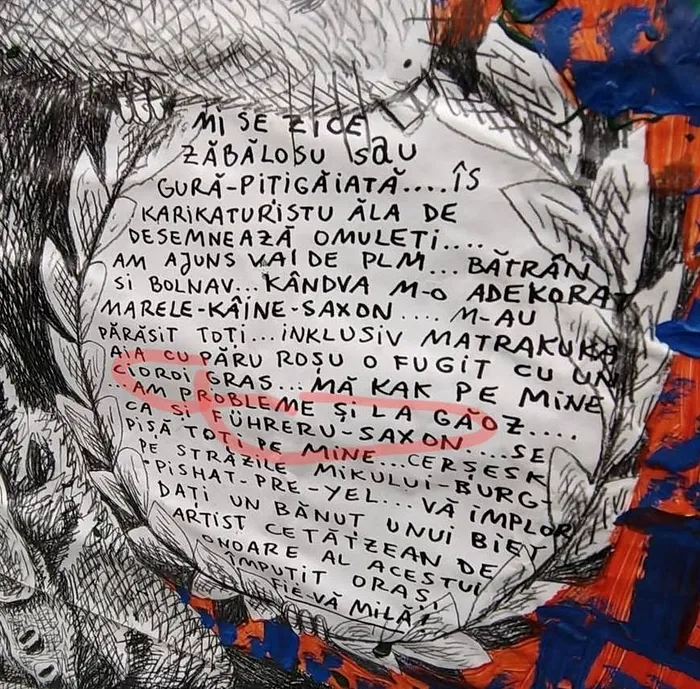 MI SE ZICE
ZĂBĂLOSU sau
GURĂ-PIȚIGĂIATĂ.... ÎS
KARIKATURISTU ĂLA DE
DESEMNEAZĂ OMULEȚI....
AM AJUNS VAI DE PLM... BĂTRÂN
SI BOLNAV... KÂNDVA M-O ADEKORAT
MARELE-KÂINE-SAXON .... M-AU
PĂRĂSIT TOȚI... INKLUSIV MATRAKUKA
AIA CU PĂRU ROȘU O FUGIT CU UN
CIOROI GRAS... MĂ KAK PE MINE
...AM PROBLEME ȘI LA GĂOZ....
CA SI FÜHRERU-SAXON .... SE
PIȘĂ TOȚI PE MINE... CERȘESK
PE STRĂZILE MIKULUI-BURG-
-PISHAT-PRE-YEL... VĂ IMPLOR
DAȚI UN BĂNUT UNUI BIET
ARTIST CETĂTZEAN DE
ONOARE AL ACESTUI
ÎMPUȚIT ORAȘ,
FIE-VĂ MILĂ!